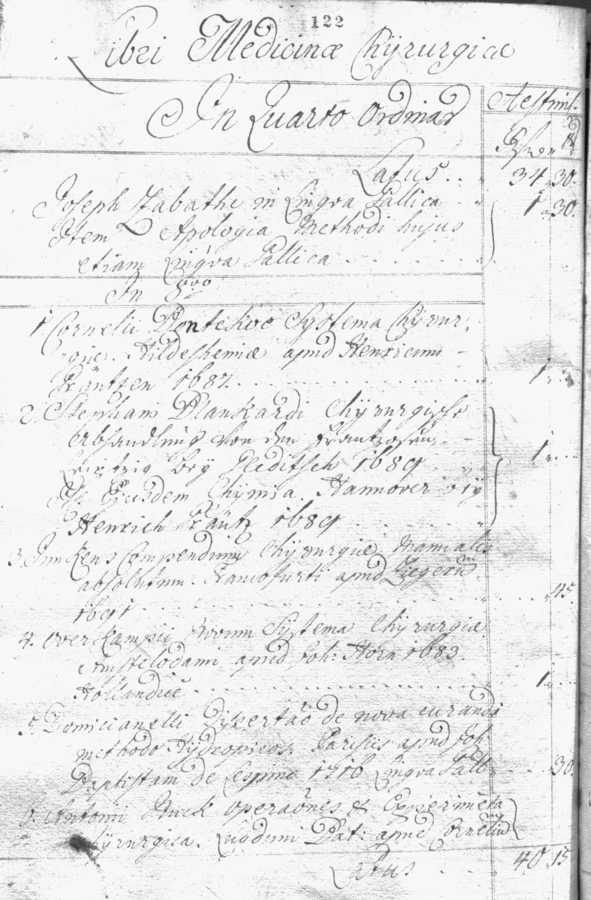 122
Libri Medicinæ Chÿrurgiæ
In Quarto Ordinar
Æstim.
Latus . . 34 . 30.
Joseph Labathe in Lingva Gallica 1 . 30.
Item Apologia Methodi hujus
etiam Lingva Gallica . . . .
In 8vo
1 Cornelii Bontekoe Systema Chÿrur-
giæ. Hildeshemiæ apud Henricum
1687. . . . . . 1 . . .
2. Stephani Blankardi Chÿrurgische
Abhandlung von den Frantzosen
Leipzig beÿ Gleditsch 1689 1 . . .
Ejusdem Chÿmia. Hannover beÿ
Henrich 1689
3. Junkens Compendium Chÿrurgiæ Manualis
absolutum. Francofurti apud
1691 . . . . . 45.
4. Overkampii Novum Systema Chÿrurgiæ
Amstelodami apud Joh: Horn 1683.
Hollandice . . . . . 1 . . .
5. Dissertaō de nova curandi
methodo Hÿdropicos. Parisiis apud Joh:
Baptistam de Espine 1710 Lingva Gall: . . 30.
6. Antoni Nuck operaōnes & Experimēta
Chÿrurgica. Lugduni Bat: apud Corneliū
Latus . . . 40. 15